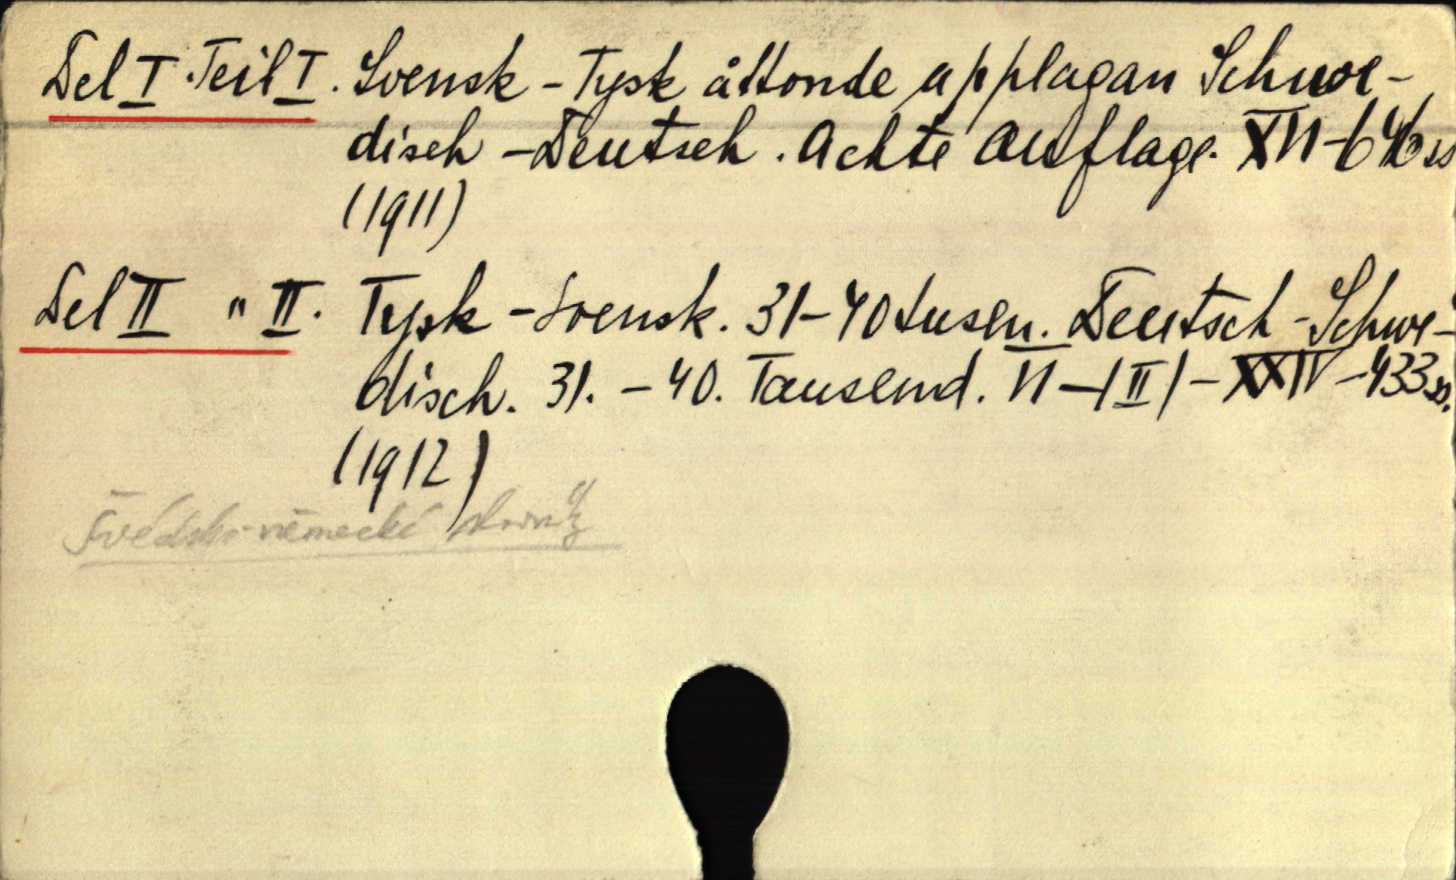 Del I. Teil I. Svensk - Tysk åttonde applagan Schwe-
disch - Deutsch. Achte Auflage. XII - 646 ss
(1911)
Del II " II. Tysk - Svensk. 31-40 tusen. Deutsch - Schwe-
disch. 31. - 40. Tausend. VI - (II) - XXIV - 433 ss.
(1912)
Švédsko-německé